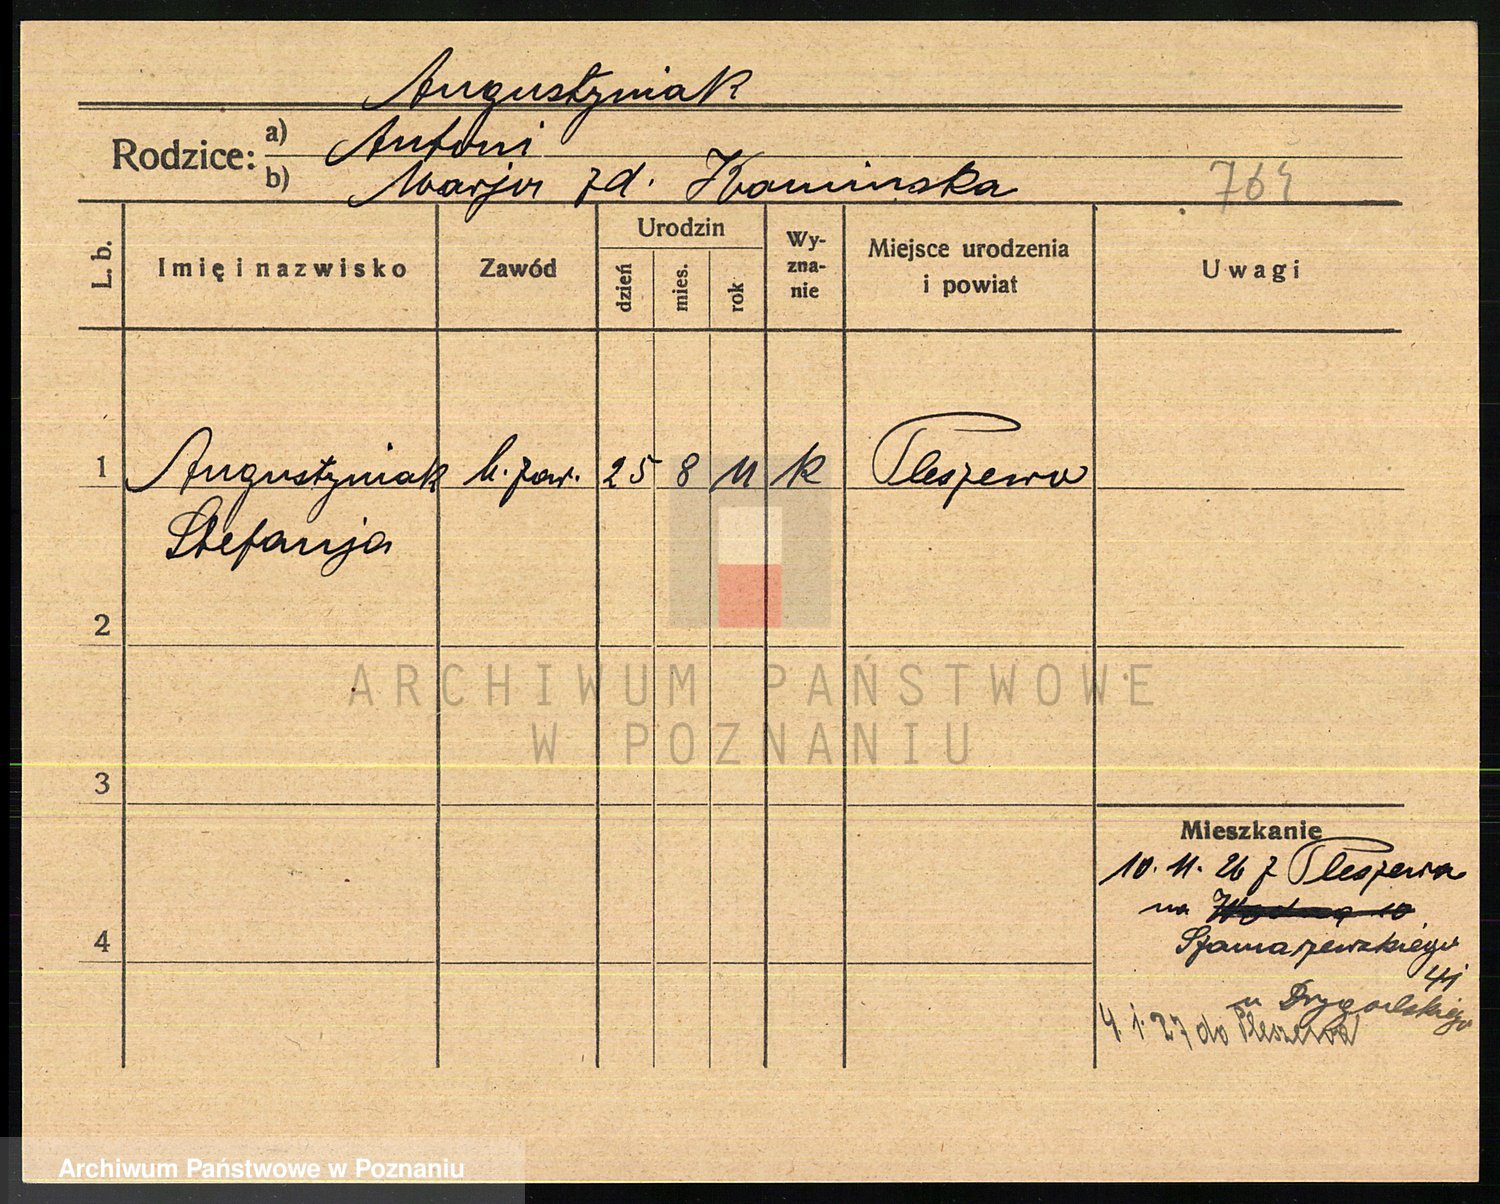 Augustyniak
Rodzice: a) Antoni
b) Marja zd. Kamińska
764
L. b.
Imię i nazwisko
Zawód
Urodzin
dzień
mies.
rok
Wy-
zna-
nie
Miejsce urodzenia
i powiat
Uwagi
1 Augustyniak b. zaw. 25 8 11 k Pleszewo
Stefanja
2
3
4
Mieszkanie
10. 11. 26 z Pleszewa
na
Szamarzewskiego
41
u
4. 1. 27 do Pleszewa
ARCHIWUM PAŃSTWOWE
W POZNANIU
Archiwum Państwowe w Poznaniu